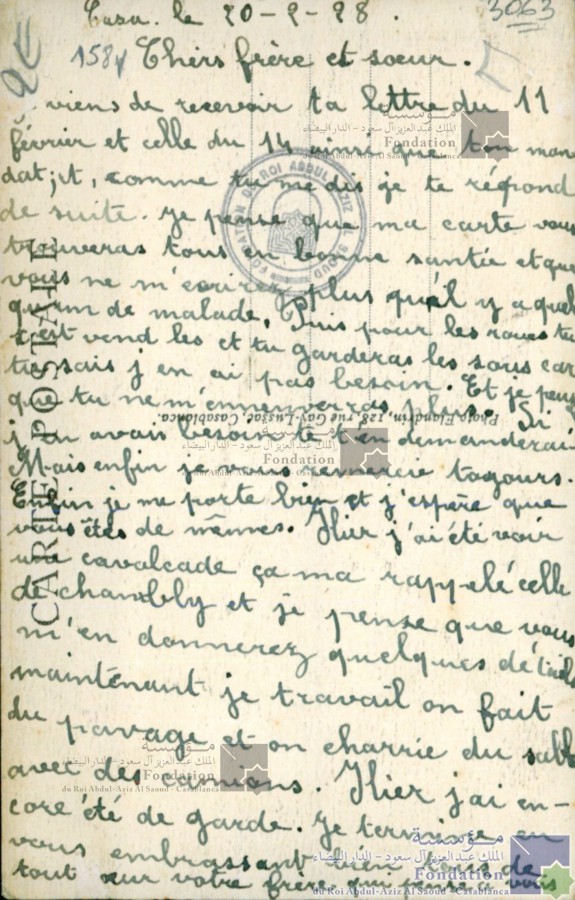 Casa. le 20-2-28.
3063
158
Chers frère et soeur.
viens de recevoir ta lettre du 11
février et celle du 14 ainsi que ton man
dat; et, comme tu me dis je te répond
de suite. Je pense que ma carte vous
trouveras tous en bonne santée et que
vous ne m'écrirez plus qu'el y a quel
qu'un de malade. Puis pour les roues tu
vend les et tu garderas les sous car
tu sais j'en ai pas besoin. Et je pense
que tu ne m'en enverras plus. Si
j'en avais besoin je t'en demanderai
Mais enfin je vous remercie togours.
Enfin je me porte bien et j'espère que
vous êtes de mêmes. Hier j'ai été voir
une cavalcade ça ma rappelé celle
de chambly et je pense que vous
m'en donnerez quelques détails
maintenant je travail on fait
du pavage et on charrie du sable
avec des camions. Hier j'ai en-
core été de garde. Je termine en
vous embrassant bien tous de
tout cœur votre frère qui pense à vous
CARTE POSTALE
Photo Flandrin, 128, rue Gay-Lussac, Casablanca.
FONDATION DU ROI ABDUL AZIZ AL SAOUD
مؤسسة
الملك عبدالعزيز آل سعود - الدار البيضاء
Fondation
du Roi Abdul-Aziz Al Saoud - Casablanca
مؤسسة
الملك عبدالعزيز آل سعود - الدار البيضاء
Fondation
du Roi Abdul-Aziz Al Saoud - Casablanca
مؤسسة
الملك عبدالعزيز آل سعود - الدار البيضاء
Fondation
du Roi Abdul-Aziz Al Saoud - Casablanca
مؤسسة
الملك عبدالعزيز آل سعود - الدار البيضاء
Fondation
du Roi Abdul-Aziz Al Saoud - Casablanca